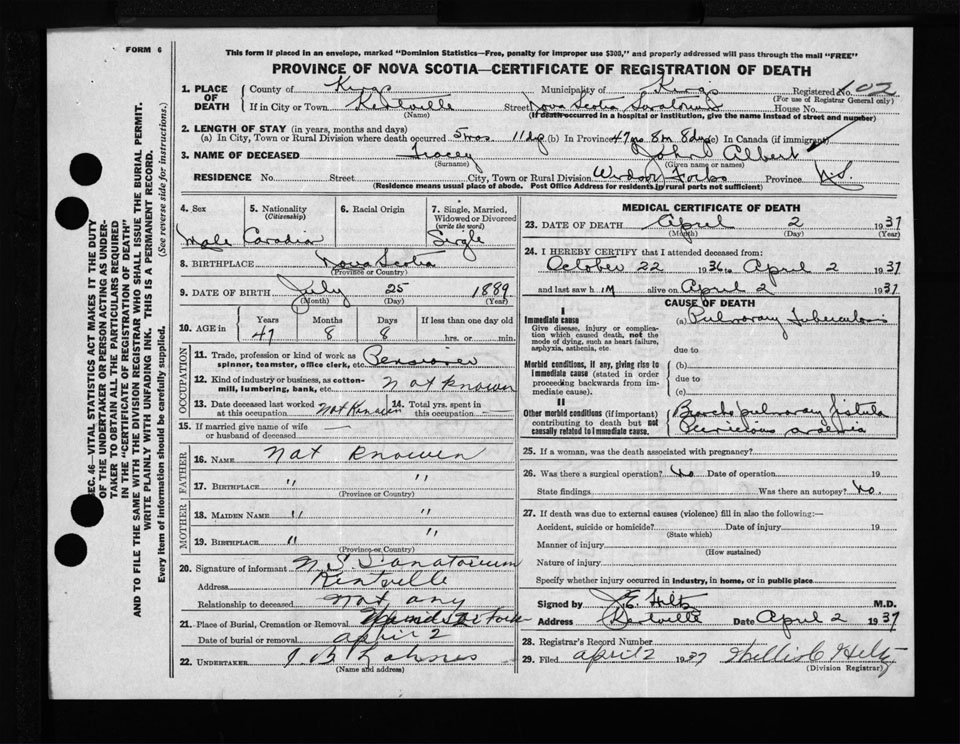 FORM 6
This form if placed in an envelope, marked "Dominion Statistics—Free, penalty for improper use $300," and properly addressed will pass through the mail "FREE"
PROVINCE OF NOVA SCOTIA—CERTIFICATE OF REGISTRATION OF DEATH
1. PLACE OF DEATH
County of Kings Municipality of Kings Registered No. 102
(For use of Registrar General only)
If in City or Town Kentville Street Nova Scotia Sanatorium House No.
(Name) (If death occurred in a hospital or institution, give the name instead of street and number)
2. LENGTH OF STAY (in years, months and days)
(a) In City, Town or Rural Division where death occurred 5 mos 11 dys (b) In Province 47 y 8 m 8 dys (c) In Canada (if immigrant)
3. NAME OF DECEASED Tracey John Albert
(Surname) (Given name or names)
RESIDENCE No. Street City, Town or Rural Division Windsor Forks Province N.S.
(Residence means usual place of abode. Post Office Address for residents in rural parts not sufficient)
4. Sex
Male
5. Nationality
(Citizenship)
Canadian
6. Racial Origin
7. Single, Married, Widowed or Divorced
(write the word)
Single
8. BIRTHPLACE Nova Scotia
(Province or Country)
9. DATE OF BIRTH July 25 1889
(Month) (Day) (Year)
10. AGE in Years Months Days If less than one day old
47 8 8 hrs. or min.
OCCUPATION
11. Trade, profession or kind of work as spinner, teamster, office clerk, etc. Pensioner
12. Kind of industry or business, as cotton-mill, lumbering, bank, etc. Not known
13. Date deceased last worked at this occupation Not Known 14. Total yrs. spent in this occupation —
15. If married give name of wife or husband of deceased —
FATHER
16. NAME Not Known
17. BIRTHPLACE " "
(Province or Country)
MOTHER
18. MAIDEN NAME " "
19. BIRTHPLACE " "
(Province or Country)
20. Signature of informant N.S. Sanatorium
Address Kentville
Relationship to deceased not any
21. Place of Burial, Cremation or Removal Windsor Forks
Date of burial or removal April 2
22. UNDERTAKER
(Name and address)
MEDICAL CERTIFICATE OF DEATH
23. DATE OF DEATH April 2 1937
(Month) (Day) (Year)
24. I HEREBY CERTIFY that I attended deceased from:
October 22 1936 to April 2 1937
and last saw him alive on April 2 1937
CAUSE OF DEATH
I
Immediate cause (a) Pulmonary Tuberculosis
Give disease, injury or complication which caused death, not the mode of dying, such as heart failure, asphyxia, asthenia, etc.
due to
Morbid conditions, if any, giving rise to Immediate cause (stated in order proceeding backwards from immediate cause).
(b)
due to
(c)
II
Other morbid conditions (if important) contributing to death but not causally related to immediate cause.
Broncho pulmonary fistula
Pernicious anaemia
25. If a woman, was the death associated with pregnancy?
26. Was there a surgical operation? No Date of operation 19
State findings Was there an autopsy? No.
27. If death was due to external causes (violence) fill in also the following:—
Accident, suicide or homicide? Date of injury 19
(State which)
Manner of injury
(How sustained)
Nature of injury
Specify whether injury occurred in industry, in home, or in public place
Signed by J.E. Hiltz M.D.
Address Kentville Date April 2 1937
28. Registrar's Record Number
29. Filed April 2 1937 Hiltz
(Division Registrar)
SEC. 46—VITAL STATISTICS ACT MAKES IT THE DUTY
OF THE UNDERTAKER OR PERSON ACTING AS UNDER-
TAKER TO OBTAIN ALL THE PARTICULARS REQUIRED
IN THE "CERTIFICATE OF REGISTRATION OF DEATH"
AND TO FILE THE SAME WITH THE DIVISION REGISTRAR WHO SHALL ISSUE THE BURIAL PERMIT.
WRITE PLAINLY WITH UNFADING INK. THIS IS A PERMANENT RECORD.
Every item of information should be carefully supplied. (See reverse side for instructions.)